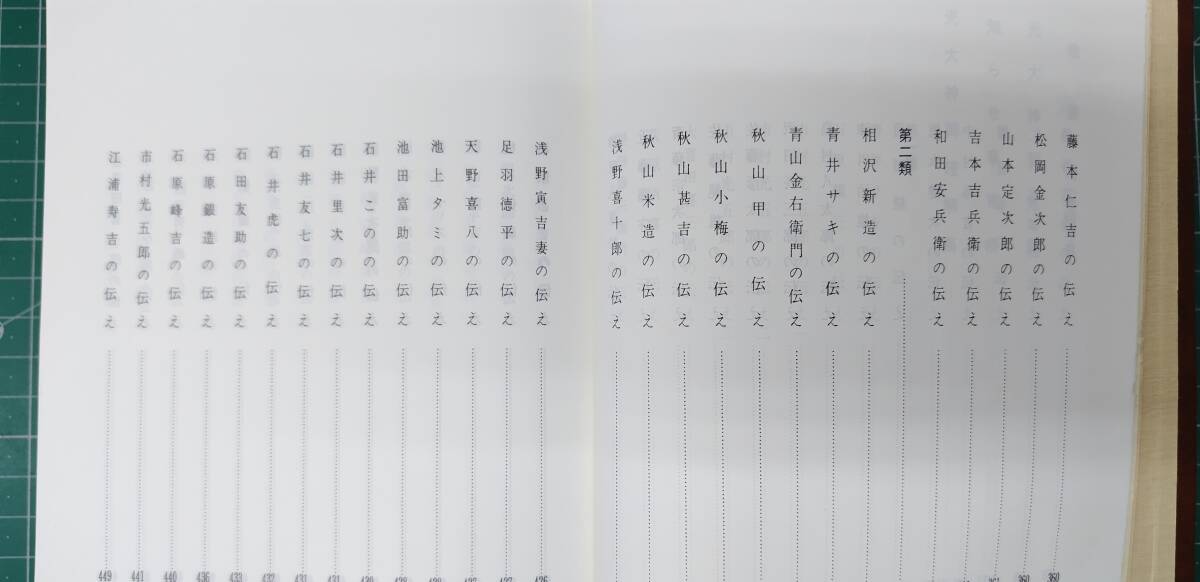 藤本仁吉の伝え
松岡金次郎の伝え
山本定次郎の伝え
吉本吉兵衛の伝え
和田安兵衛の伝え
第二類
相沢新造の伝え
青井サキの伝え
青山金右衛門の伝え
秋山甲の伝え
秋山小梅の伝え
秋山甚吉の伝え
秋山米造の伝え
浅野喜十郎の伝え
浅野寅吉妻の伝え
足羽徳平の伝え
天野喜八の伝え
池上タミの伝え
池田富助の伝え
石井このの伝え
石井里次の伝え
石井友七の伝え
石井虎の伝え
石田友助の伝え 433
石原銀造の伝え 436
石原峰吉の伝え 440
市村光五郎の伝え 441
江浦寿吉の伝え 449